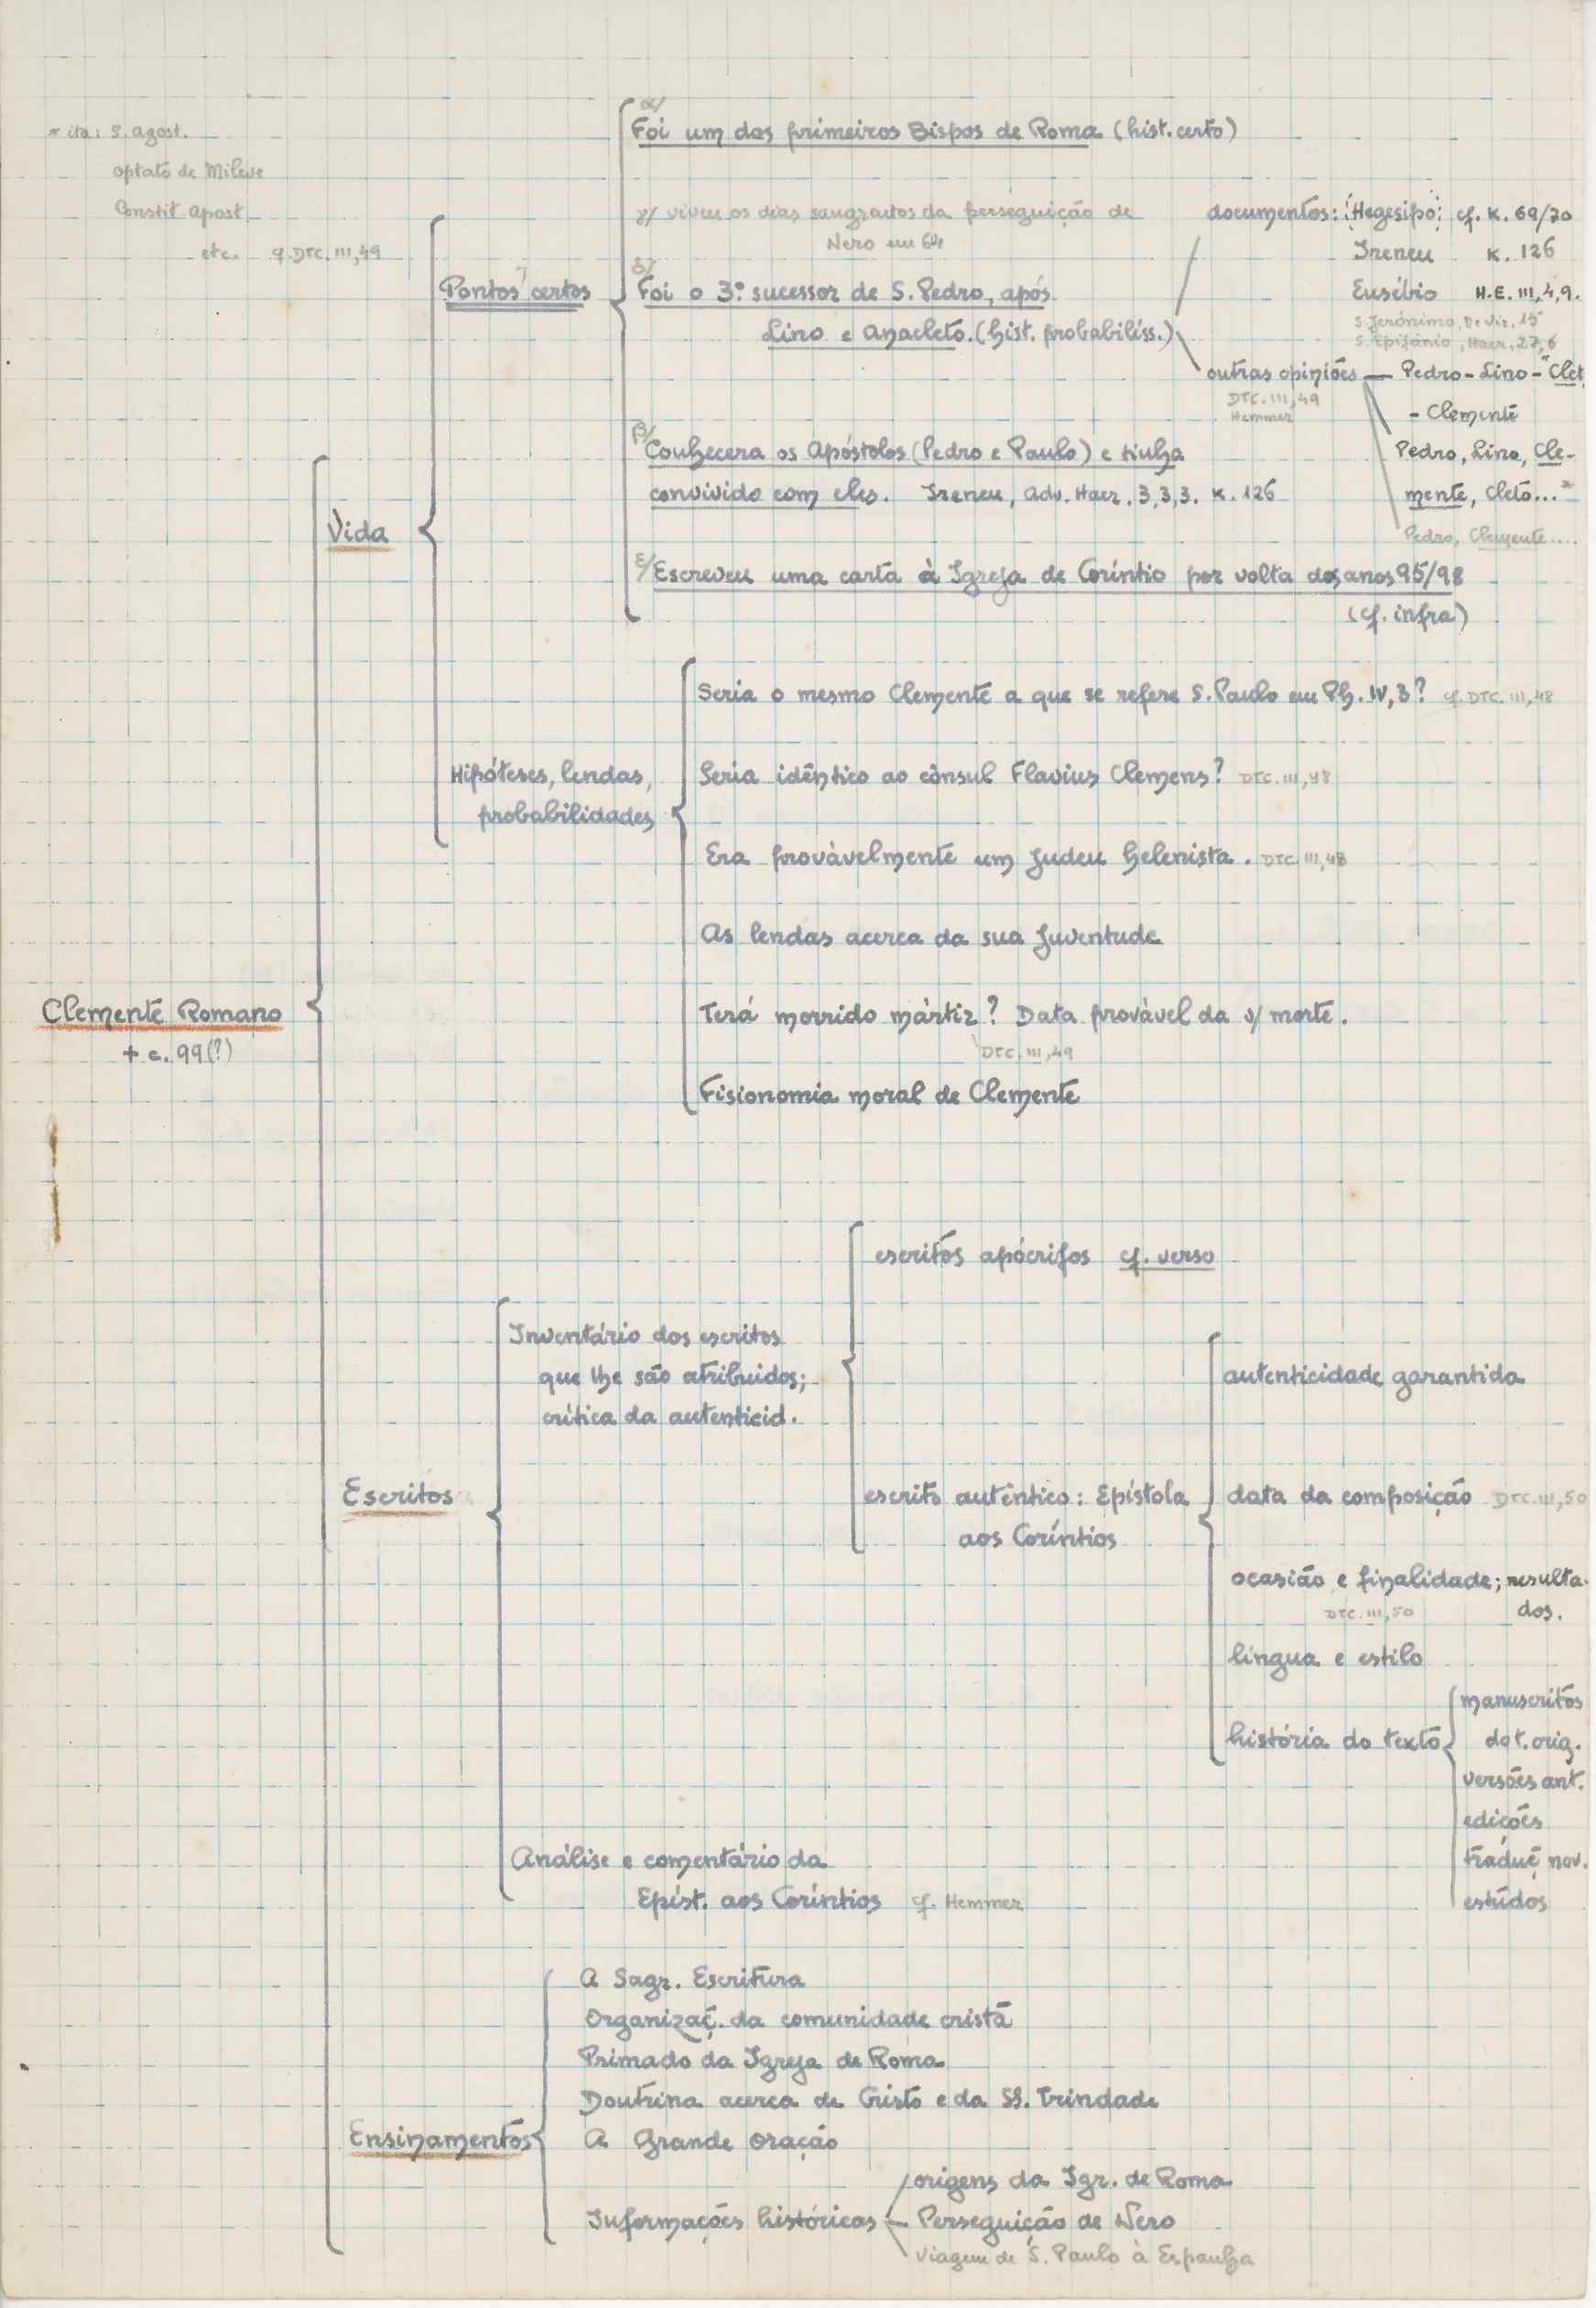 * ita: S. Agost.
Optato de Mileve
Constit Apost.
etc. cf. DTC. III, 49
Clemente Romano
+ c. 99(?)
Vida
Pontos certos
α/
Foi um dos primeiros Bispos de Roma (hist. certo)
γ/ viveu os dias sangrentos da perseguição de
Nero em 64
δ/
Foi o 3º sucessor de S. Pedro, após
Lino e Anacleto. (hist. probabilíss.)
documentos: Hegesipo: cf. K. 69/70
Ireneu K. 126
Eusébio H.E. III, 4, 9.
S. Jerónimo, De Vir. 15
S. Epifânio, Haer. 27, 6
outras opiniões — Pedro - Lino - "Clet
DTC. III, 49
Hemmer
- Clemente
Pedro, Lino, Cle-
mente, Cleto... *
Pedro, Clemente....
β/
Conhecera os Apóstolos (Pedro e Paulo) e tinha
convivido com eles. Ireneu, Adv. Haer. 3, 3, 3. K. 126
ε/ Escreveu uma carta à Igreja de Coríntio por volta dos anos 95/98
(cf. infra)
Hipóteses, lendas,
probabilidades
Seria o mesmo Clemente a que se refere S. Paulo em Ph. IV, 3? cf. DTC. III, 48
Seria idêntico ao cônsul Flavius Clemens? DTC. III, 48
Era provàvelmente um judeu helenista. DTC. III, 48
As lendas acerca da sua juventude
Terá morrido mártir? Data provàvel da s/ morte.
DTC. III, 49
Fisionomia moral de Clemente
Escritos
Inventário dos escritos
que lhe são atribuidos;
crítica da autenticid.
escritos apócrifos cf. verso
escrito autêntico: Epístola
aos Coríntios
autenticidade garantida
data da composição DTC. III, 50
ocasião e finalidade; resulta-
DTC. III, 50 dos.
língua e estilo
história do texto
manuscritos
do t. orig.
versões ant.
edições
traduç. nov.
estudos
Análise e comentário da
Epíst. aos Coríntios cf. Hemmer
Ensinamentos
A Sagr. Escritura
Organizaç. da comunidade cristã
Primado da Igreja de Roma
Doutrina acerca de Cristo e da SS. Trindade
A Grande Oração
Informações históricas
origens da Igr. de Roma
Perseguição de Nero
Viagem de S. Paulo à Espanha